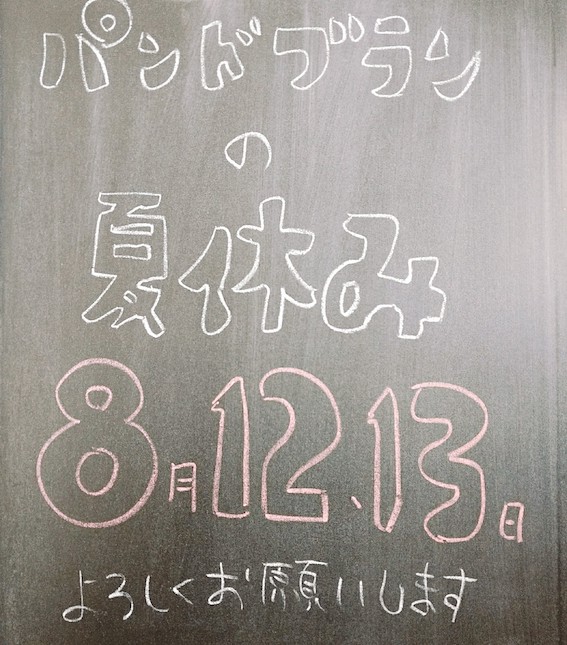 パンドブラン
の
夏休み
8月12、13日
よろしくお願いします